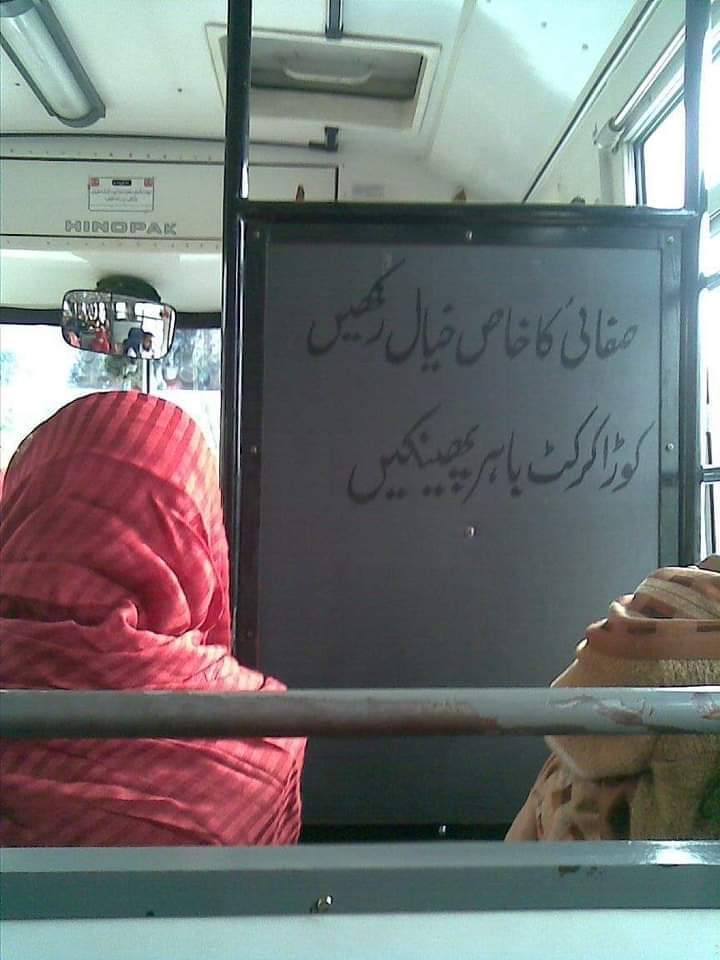 HINOPAK
صفائی کا خاص خیال رکھیں
کوڑا کرکٹ باہر پھینکیں